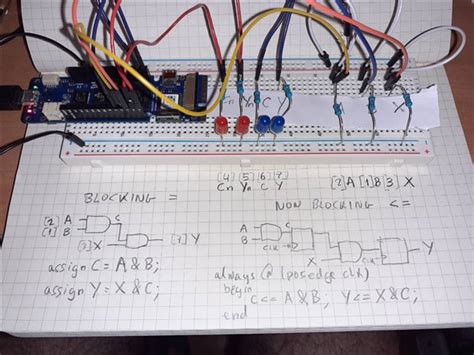 Cn Yn C Y
X
[4] [5] [6] [7]
Cn Yn C Y
[2]A [1]B [3] X
BLOCKING =
NON BLOCKING <=
[2] A
[1] B
C
[3]X
[7] Y
A
B
C
CLK
X
CLK
Y
assign C = A & B;
assign Y = X & C;
always @ (posedge clk)
begin
C <= A & B; Y <= X & C;
end